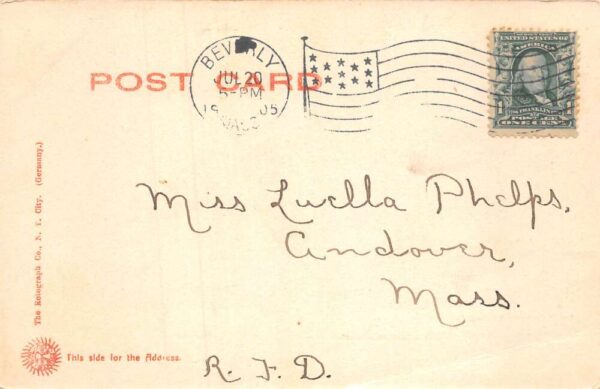 POST CARD
BEVERLY
JUL 20
5-PM
1905
MASS
UNITED STATES OF
AMERICA
FRANKLIN
1 1
POSTAGE
ONE CENT
Miss Luella Phelps,
Andover,
Mass.
R. F. D.
The Rotograph Co., N. Y. City. (Germany.)
This side for the Address.